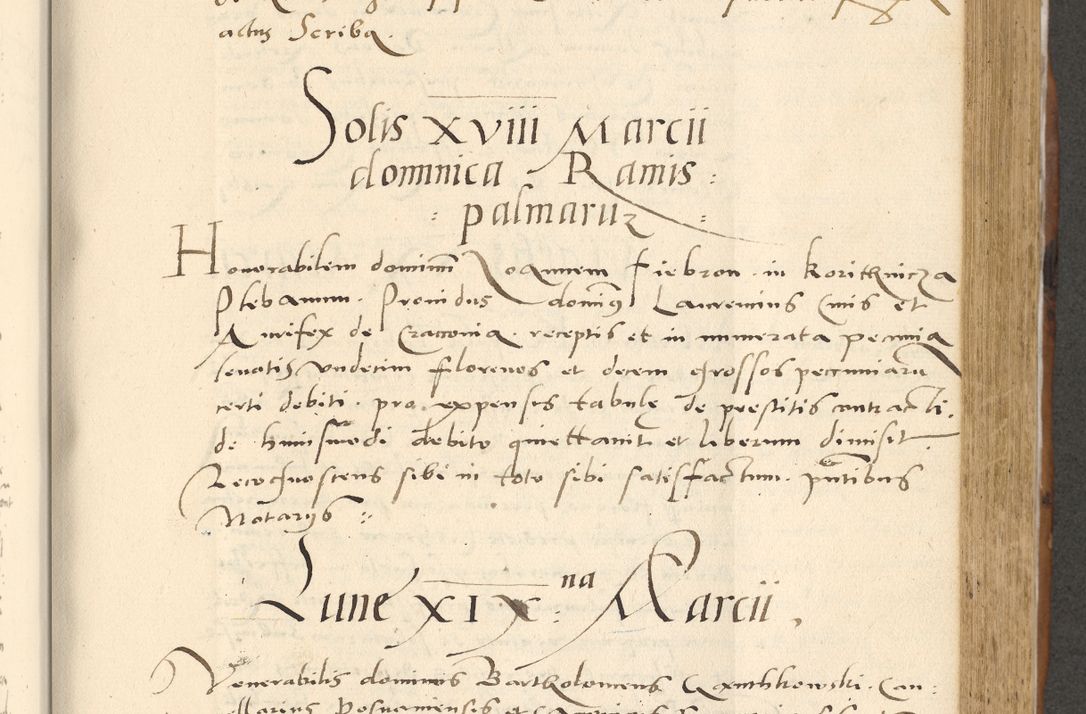 actus Scriba.
Solis XVIII Marcii
dominica Ramis
palmaruz
Honorabilem dominum Joannem Fiebron in Korithnicza
Plebanum. Providus dominus Laurencius Civis et
Aurifex de Cracovia receptis et in numerata pecunia
levatis undecim florenos et decem grossos peccuniarum
certi debiti. pro expensis tabulę de prestitis contracti.
de huiusmodi debito quiettavit et liberum dimisit
Recognoscens sibi in toto sibi satisfactum. pntibus
Notarijs
Lune XIX na Marcii,
Venerabilis dominus Bartholomeus Ganthkowski Can:
Posnaniensis et